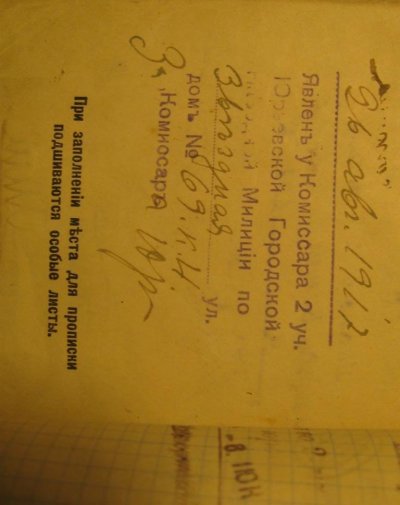 26 авг. 1917
Явленъ у Комиссара 2 уч.
Юрьевской Городской
Милиціи по
Звѣздная ул.
домъ № 69 к. 4
За Комиссара
При заполненіи мѣста для прописки
подшиваются особые листы.